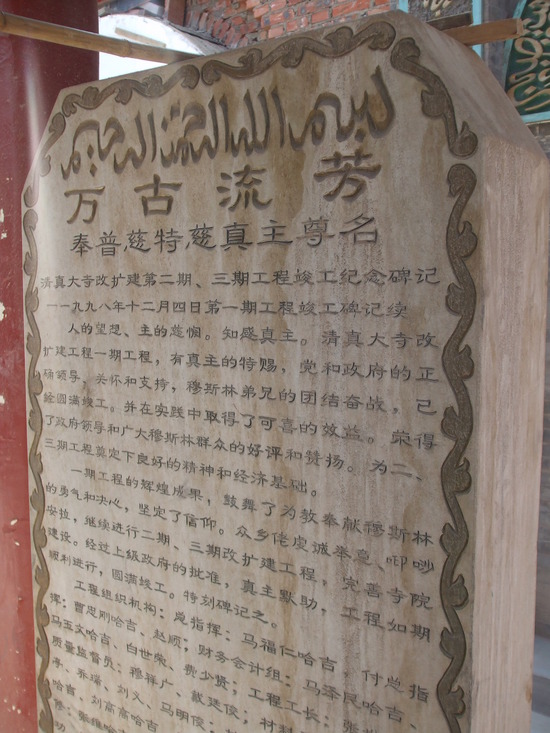 بسم الله الرحمن الرحيم
万古流芳
奉普慈特慈真主尊名
清真大寺改扩建第二期、三期工程竣工纪念碑记
一一九九八年十二月四日第一期工程竣工碑记续
人的望想、主的慈悯。知感真主。清真大寺改
扩建工程一期工程，有真主的特赐，党和政府的正
确领导，关怀和支持，穆斯林弟兄的团结奋战，已
经圆满竣工。并在实践中取得了可喜的效益。荣得
了政府领导和广大穆斯林群众的好评和赞扬。为二、
三期工程奠定下良好的精神和经济基础。
一期工程的辉煌成果，鼓舞了为教奉献穆斯林
的勇气和决心，坚定了信仰。众乡佬虔诚举意、叩吵
安拉，继续进行二期、三期改扩建工程，完善寺院
建设。经过上级政府的批准，真主默助，工程如期
顺利进行，圆满竣工。特刻碑记之。
工程组织机构：总指挥：马福仁哈吉 付总指
挥：曹思刚哈吉、赵顺；财务会计组：马泽民哈吉、
马玉文哈吉、白世荣、费少贤；工程工长：张
质量监督员：穆祥广、戴廷俊；材
李、乔瑞、刘义、马明俊、
哈吉、刘高高哈吉